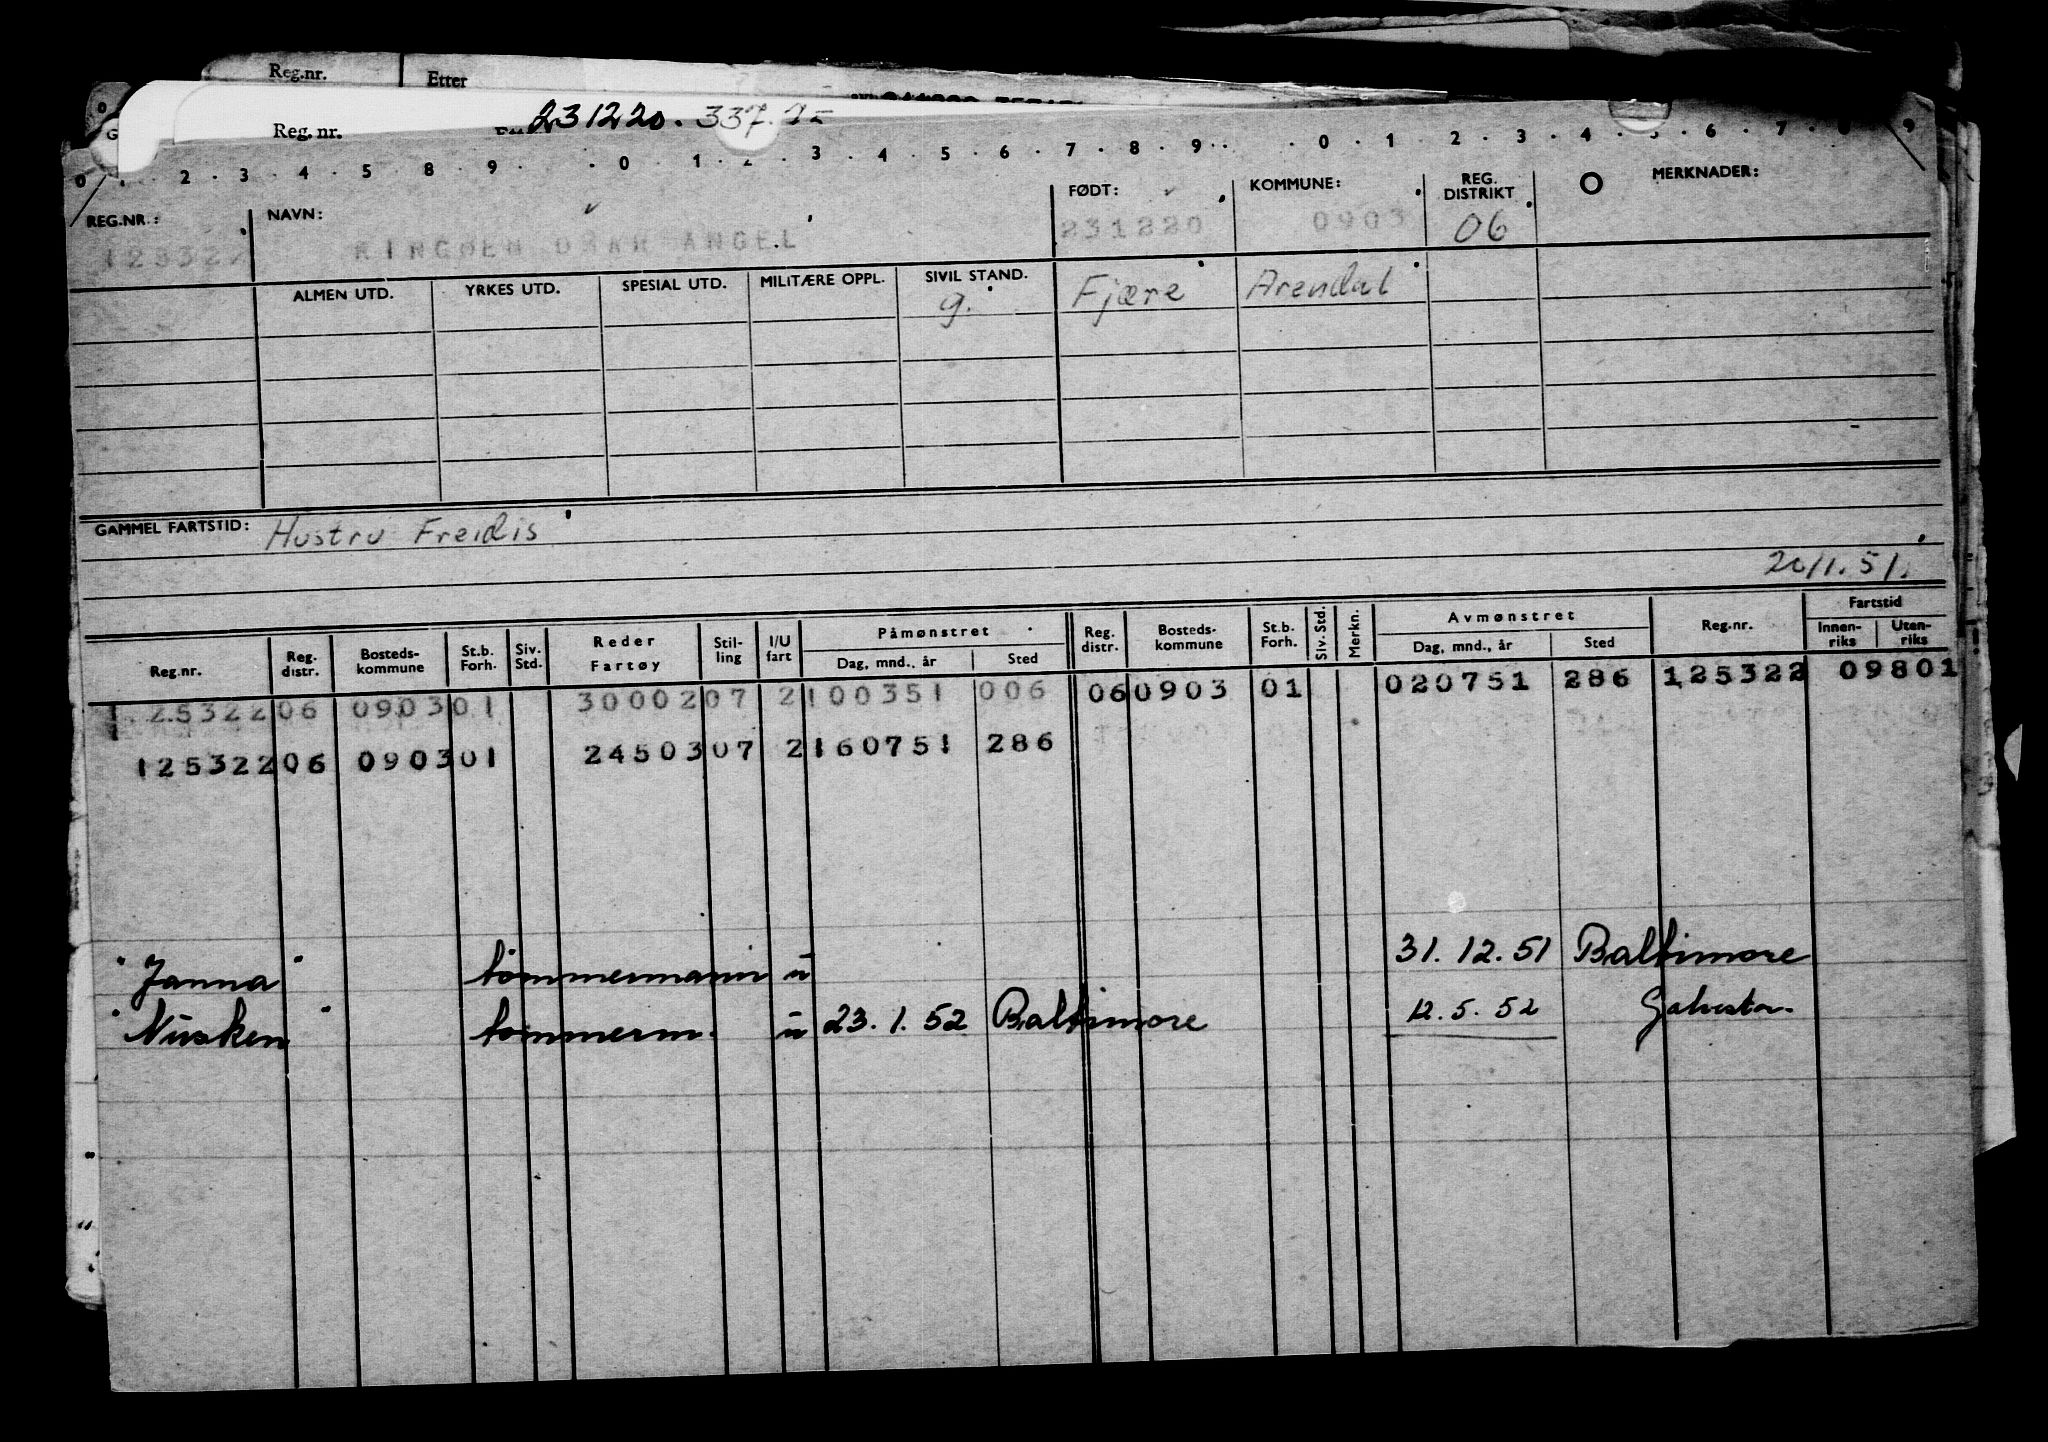 Reg.nr. Etter
Reg. nr. 231220. 337.
0 1 2 3 4 5 8 9 0 1 2 3 4 5 6 7 8 9 0 1 2 3 4 5 6 7 8 9
REG.NR.: NAVN: FØDT: KOMMUNE: REG. DISTRIKT MERKNADER:
ANGEL 231220 0903 06
ALMEN UTD. YRKES UTD. SPESIAL UTD. MILITÆRE OPPL. SIVIL STAND. Fjære Arendal
g.
GAMMEL FARTSTID: Hustru Freidis
20/1.51.
Reg.nr. Reg. distr. Bosteds-kommune St.b. Forh. Siv. Std. Reder Fartøy Stil-ling I/U fart Påmønstret Dag, mnd., år Sted Reg. distr. Bosteds-kommune St.b. Forh. Siv. Std. Merkn. Avmønstret Dag, mnd., år Sted Reg.nr. Fartstid Innen-riks Uten-riks
125322 06 0903 01 30002 07 2 100351 006 06 0903 01 020751 286 125322 09801
125322 06 0903 01 24503 07 2 160751 286
"Janna" tømmermann u 31.12.51 Baltimore
"Nisken" tømmerm. u 23.1.52 Baltimore 12.5.52 Galveston